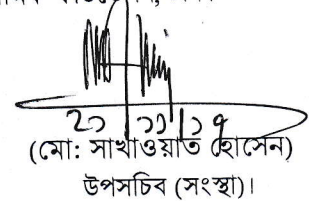 ২১|১১|১৭
(মো: সাখাওয়াত হোসেন)
উপসচিব (সংস্থা)।